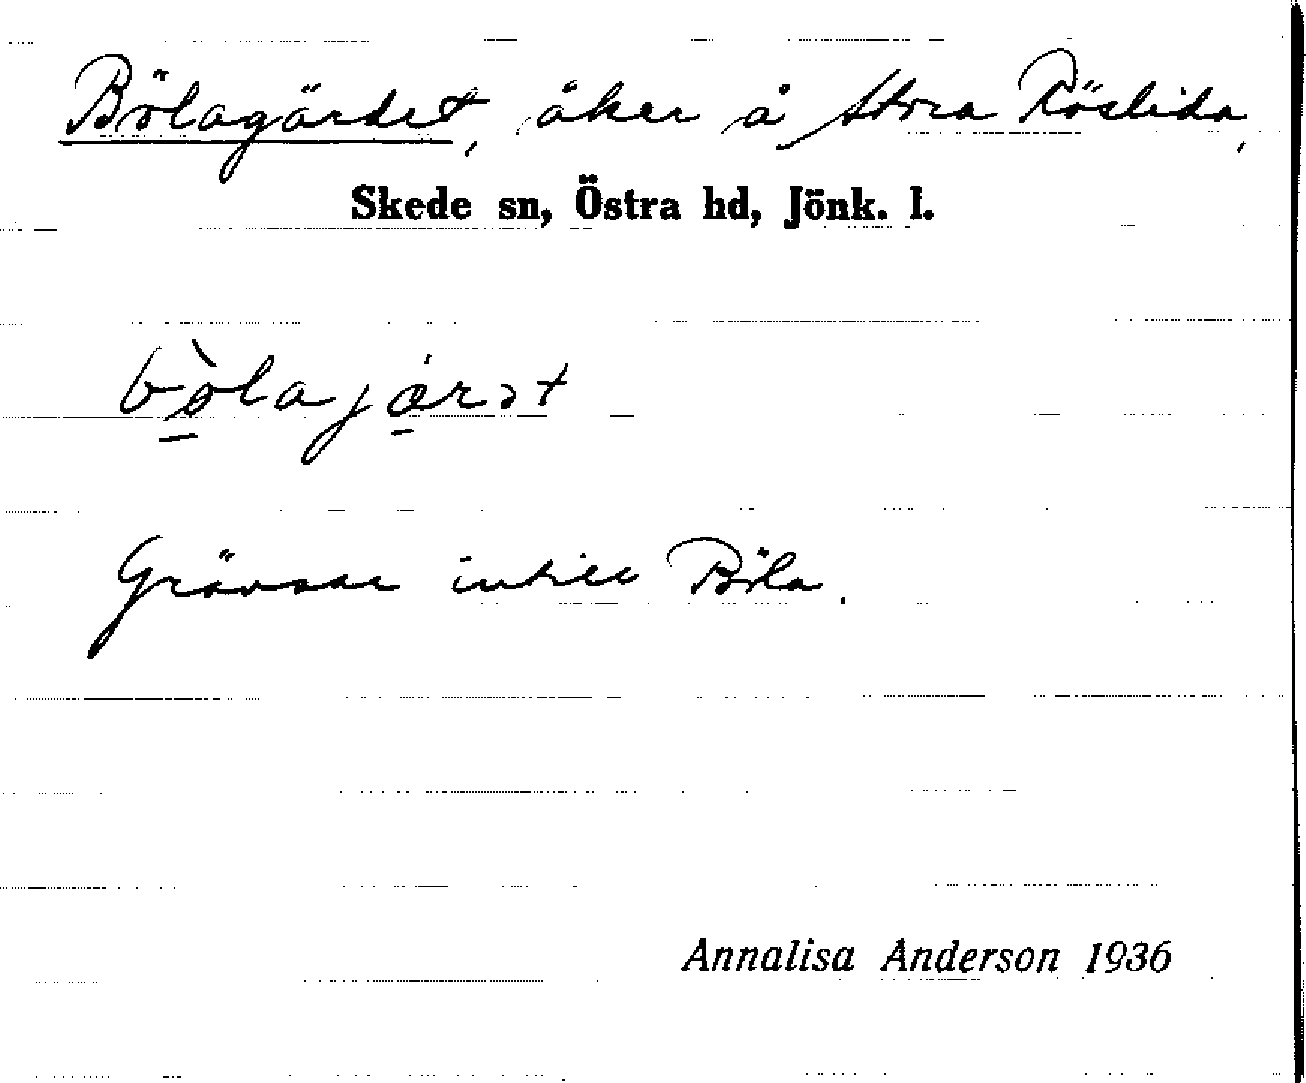 Bölagärdet, åker å Stora Röslida,
Skede sn, Östra hd, Jönk. l.
Gränsar intill Böla.
Annalisa Anderson 1936